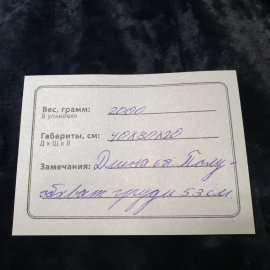 Вес, грамм: 2000
В упаковке
Габариты, см: 40х30х20
Д х Ш х В
Замечания: Длина 69. Полу-
обхват груди 53 см